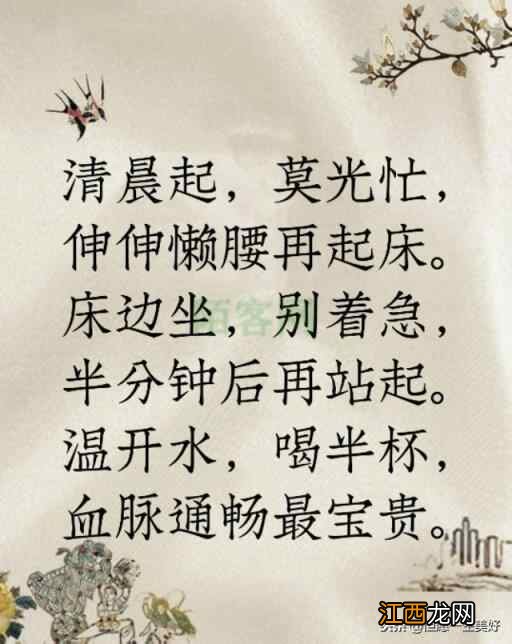 清晨起，莫光忙，
伸伸懒腰再起床。
床边坐，别着急，
半分钟后再站起。
温开水，喝半杯，
血脉通畅最宝贵。
江西龙网